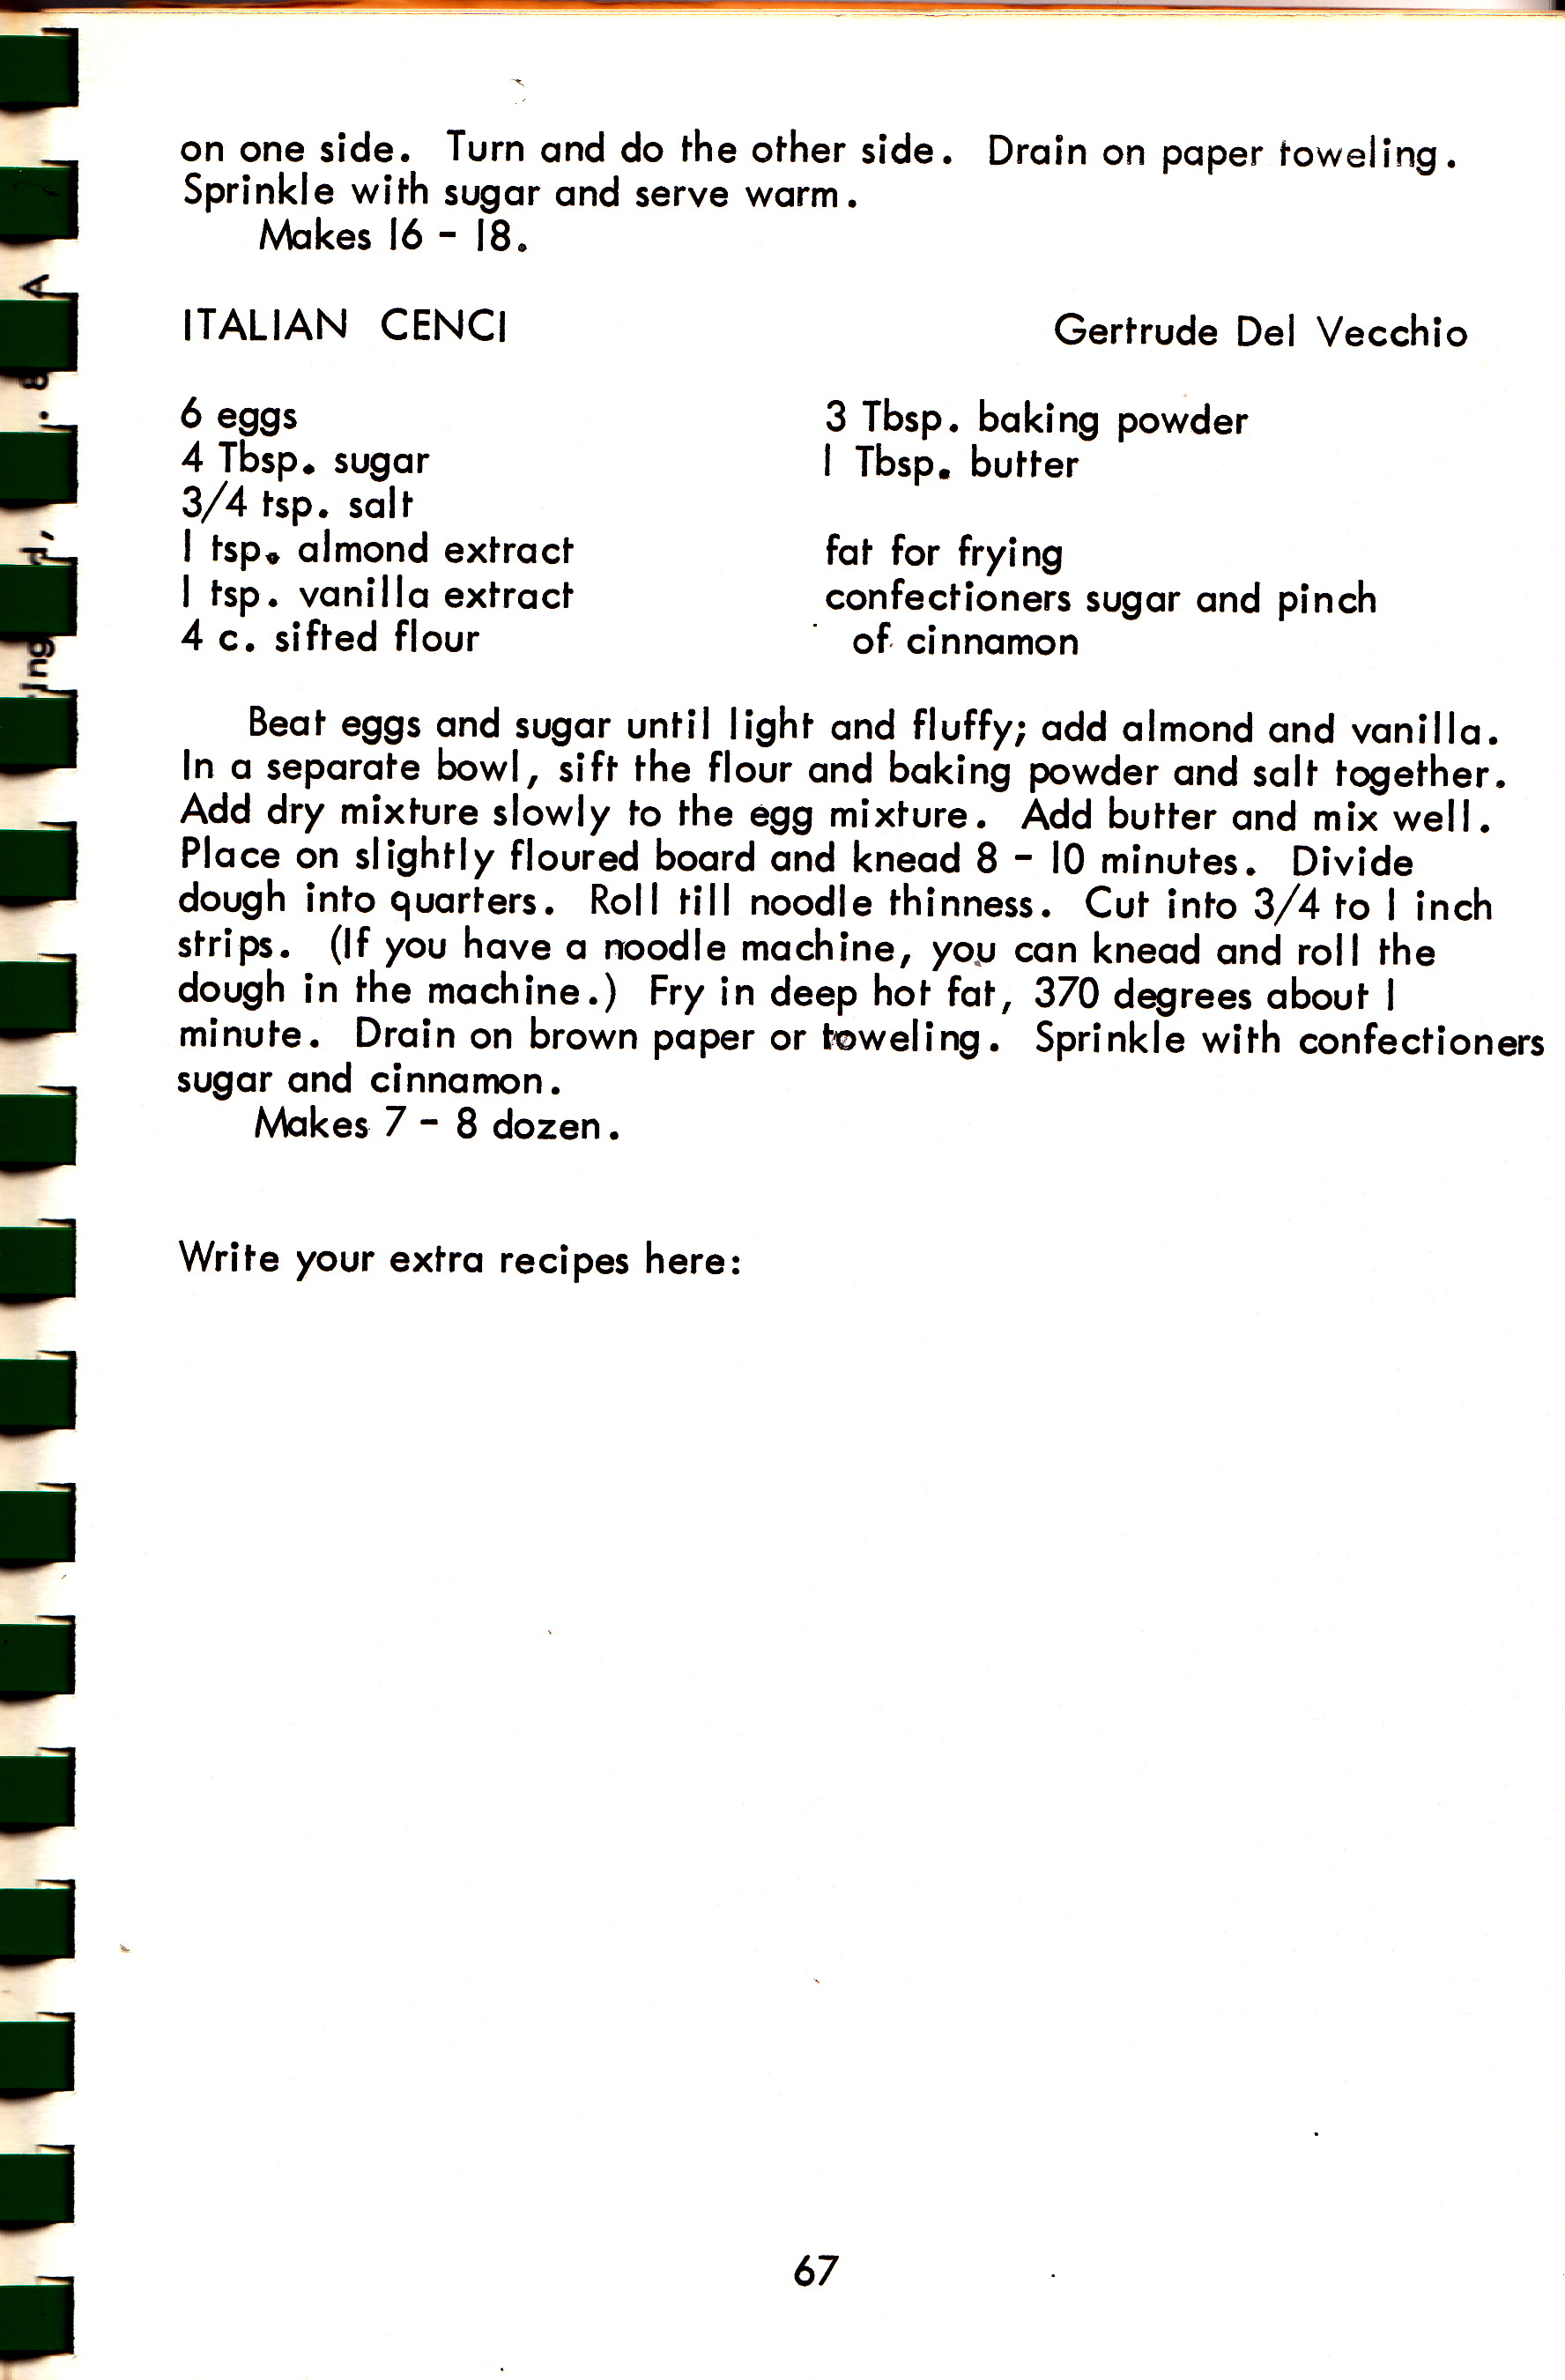 on one side. Turn and do the other side. Drain on paper toweling.
Sprinkle with sugar and serve warm.
Makes 16 - 18.
ITALIAN CENCI Gertrude Del Vecchio
6 eggs 3 Tbsp. baking powder
4 Tbsp. sugar 1 Tbsp. butter
3/4 tsp. salt
1 tsp. almond extract fat for frying
1 tsp. vanilla extract confectioners sugar and pinch
4 c. sifted flour of cinnamon
Beat eggs and sugar until light and fluffy; add almond and vanilla.
In a separate bowl, sift the flour and baking powder and salt together.
Add dry mixture slowly to the egg mixture. Add butter and mix well.
Place on slightly floured board and knead 8 - 10 minutes. Divide
dough into quarters. Roll till noodle thinness. Cut into 3/4 to 1 inch
strips. (If you have a noodle machine, you can knead and roll the
dough in the machine.) Fry in deep hot fat, 370 degrees about 1
minute. Drain on brown paper or toweling. Sprinkle with confectioners
sugar and cinnamon.
Makes 7 - 8 dozen.
Write your extra recipes here:
67